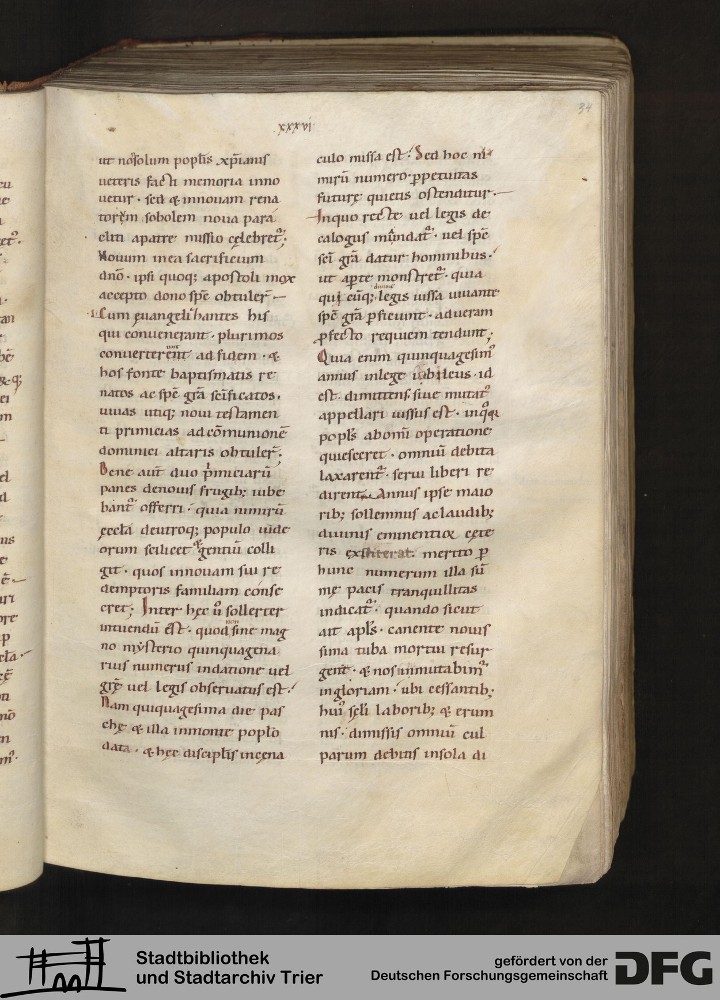 xxxvi
34
ut nō solum popl̄s xp̄ianis
ueteris facti memoria inno
uetur · sed & innouam rena
torẽm sobolem noua para
cliti apatre missio cęlebret᷑;
Nouum mea sacrificium
dn̄o · ipsi quoq; apostoli mox
accepto dono spē obtuler̄
Cum ęuangelihantes his
qui conuenerant · plurimos
conuerterent ad fidem · &
hos fonte baptismatis re
natos ac spē grā sc̄ificatos ·
uiuas utiq; noui testamen
ti primicias ad cōmunionē
dominici altaris obtuler̄;
Bene aut̄ duo p̄miciarū
panes denouis frugib; iube
bant᷑ offerri · quia nimirū
ęccl̄a deutroq; populo iude
orum scilicet & gentiū colli
git · quos innouam sui re
demptoris familiam conse
cret; Inter hęc ū sollerter
intuendū est · quod non sine mag
no mysterio quinquagena
rius numerus indatione uel
grę uel legis obseruatus est ·
Nam quiquagesima die pas
chę & illa inmonte poplo
data · & hęc discipl̄is incena
culo missa est · Sed hoc ni
mirū numero · ꝑpetuitas
futurę quietis ostenditur ·
Inquo recte uel legis de
calogus mandat᷑ · uel spē
sc̄i grā datur hominibus ·
ut aꝑte monstret᷑ · quia
qui cūq; diuinę legis iussa uiuante
spē grā ꝑficiunt · ad ueram
ꝓfecto requiem tendunt;
Quia enim quinquagesim᷒
annus inlege iubileus · id
est dimittens siue mutat᷒
appellari iussus est · inq᷒
popl̄s abomī operatione
quiesceret · omniū debita
laxarent᷑ · serui liberi re
dirent · Annus ipse maio
rib; sollemnus ac laudib;
diuinis eminentior cęte
ris existiterat merito ꝑ
hunc numerum illa sū
mę pacis tranquillitas
indicat᷑ · quando sicut
ait apl̄s · canente nouis
sima tuba mortui resur
gent · & nos inmutabim᷒
ingloriam · ubi cessantib;
hui᷒ sc̄li laborib; & erum
nis · dimissis omniū cul
parum debitis insola di
Stadtbibliothek
und Stadtarchiv Trier
gefördert von der
Deutschen Forschungsgemeinschaft
DFG